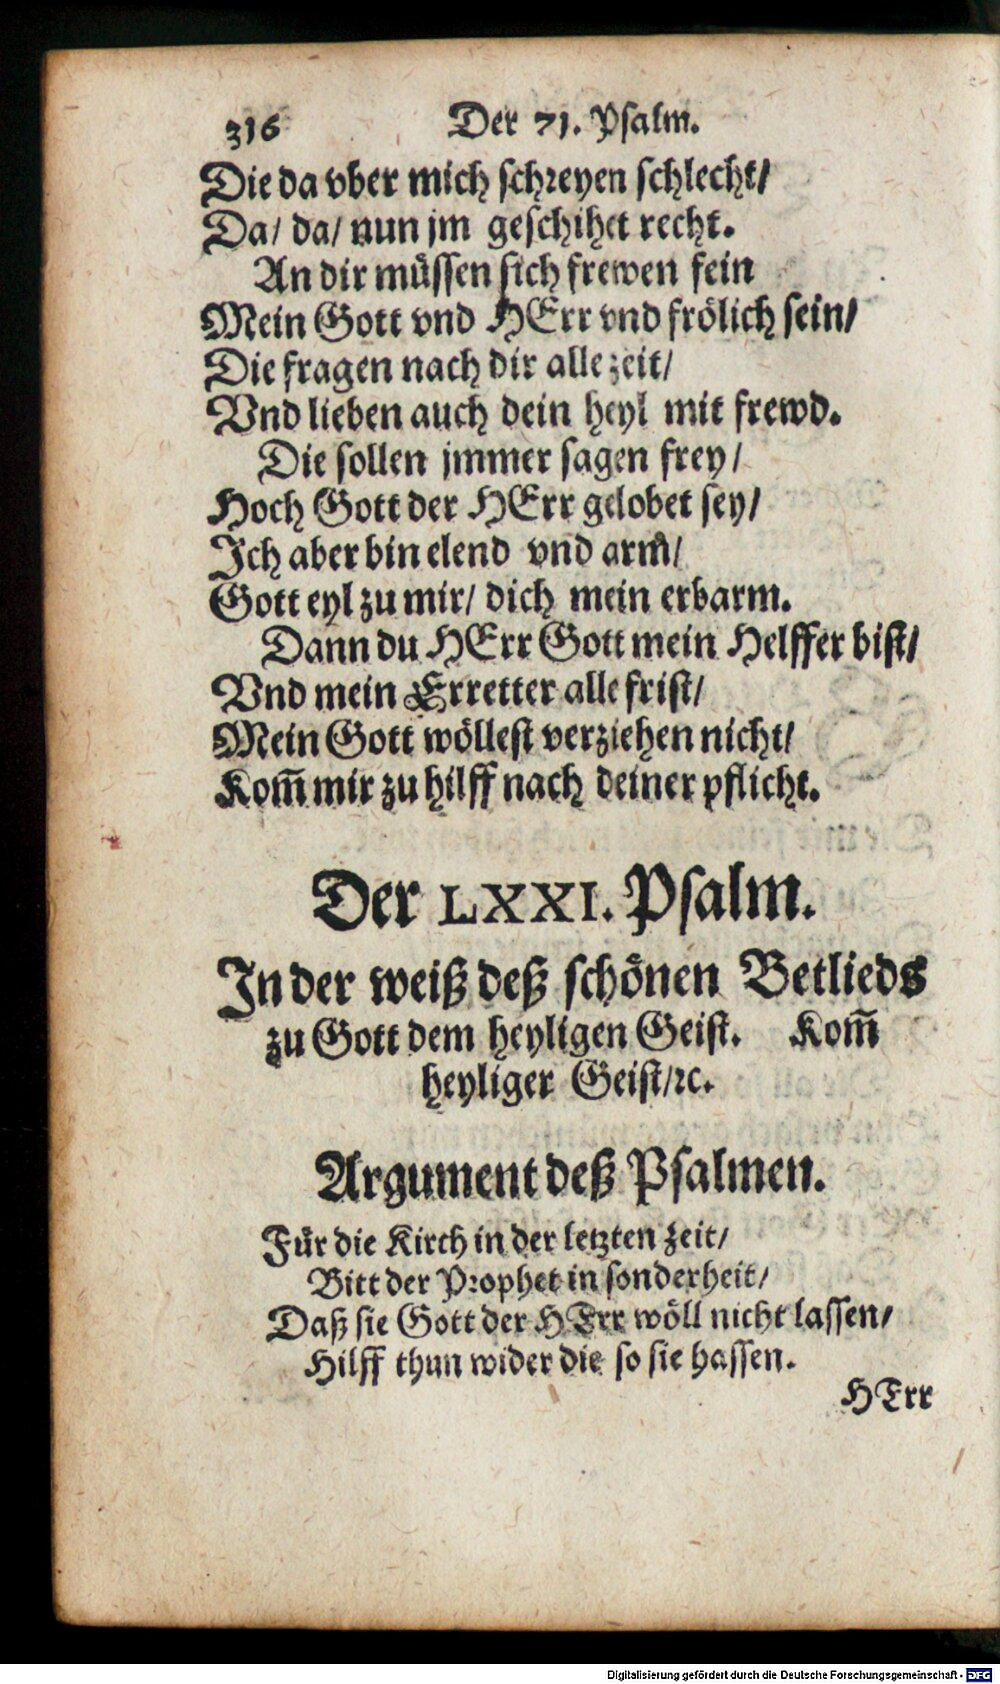 316 Der 71. Psalm.
Die da vber mich schreyen schlecht/
Da/ da/ nun jm geschihet recht.
An dir müssen sich frewen fein
Mein Gott vnd HErr vnd frölich sein/
Die fragen nach dir alle zeit/
Vnd lieben auch dein heyl mit frewd.
Die sollen jmmer sagen frey/
Hoch Gott der HErr gelobet sey/
Ich aber bin elend vnd arm/
Gott eyl zu mir/ dich mein erbarm.
Dann du HErr Gott mein Helffer bist/
Vnd mein Erretter alle frist/
Mein Gott wöllest verziehen nicht/
Kom̃ mir zu hilff nach deiner pflicht.
Der LXXI. Psalm.
In der weiß deß schönen Betlieds
zu Gott dem heyligen Geist. Kom̃
heyliger Geist/ꝛc.
Argument deß Psalmen.
Für die Kirch in der letzten zeit/
Bitt der Prophet in sonderheit/
Daß sie Gott der HErr wöll nicht lassen/
Hilff thun wider die so sie hassen.
HErr
Digitalisierung gefördert durch die Deutsche Forschungsgemeinschaft - DFG